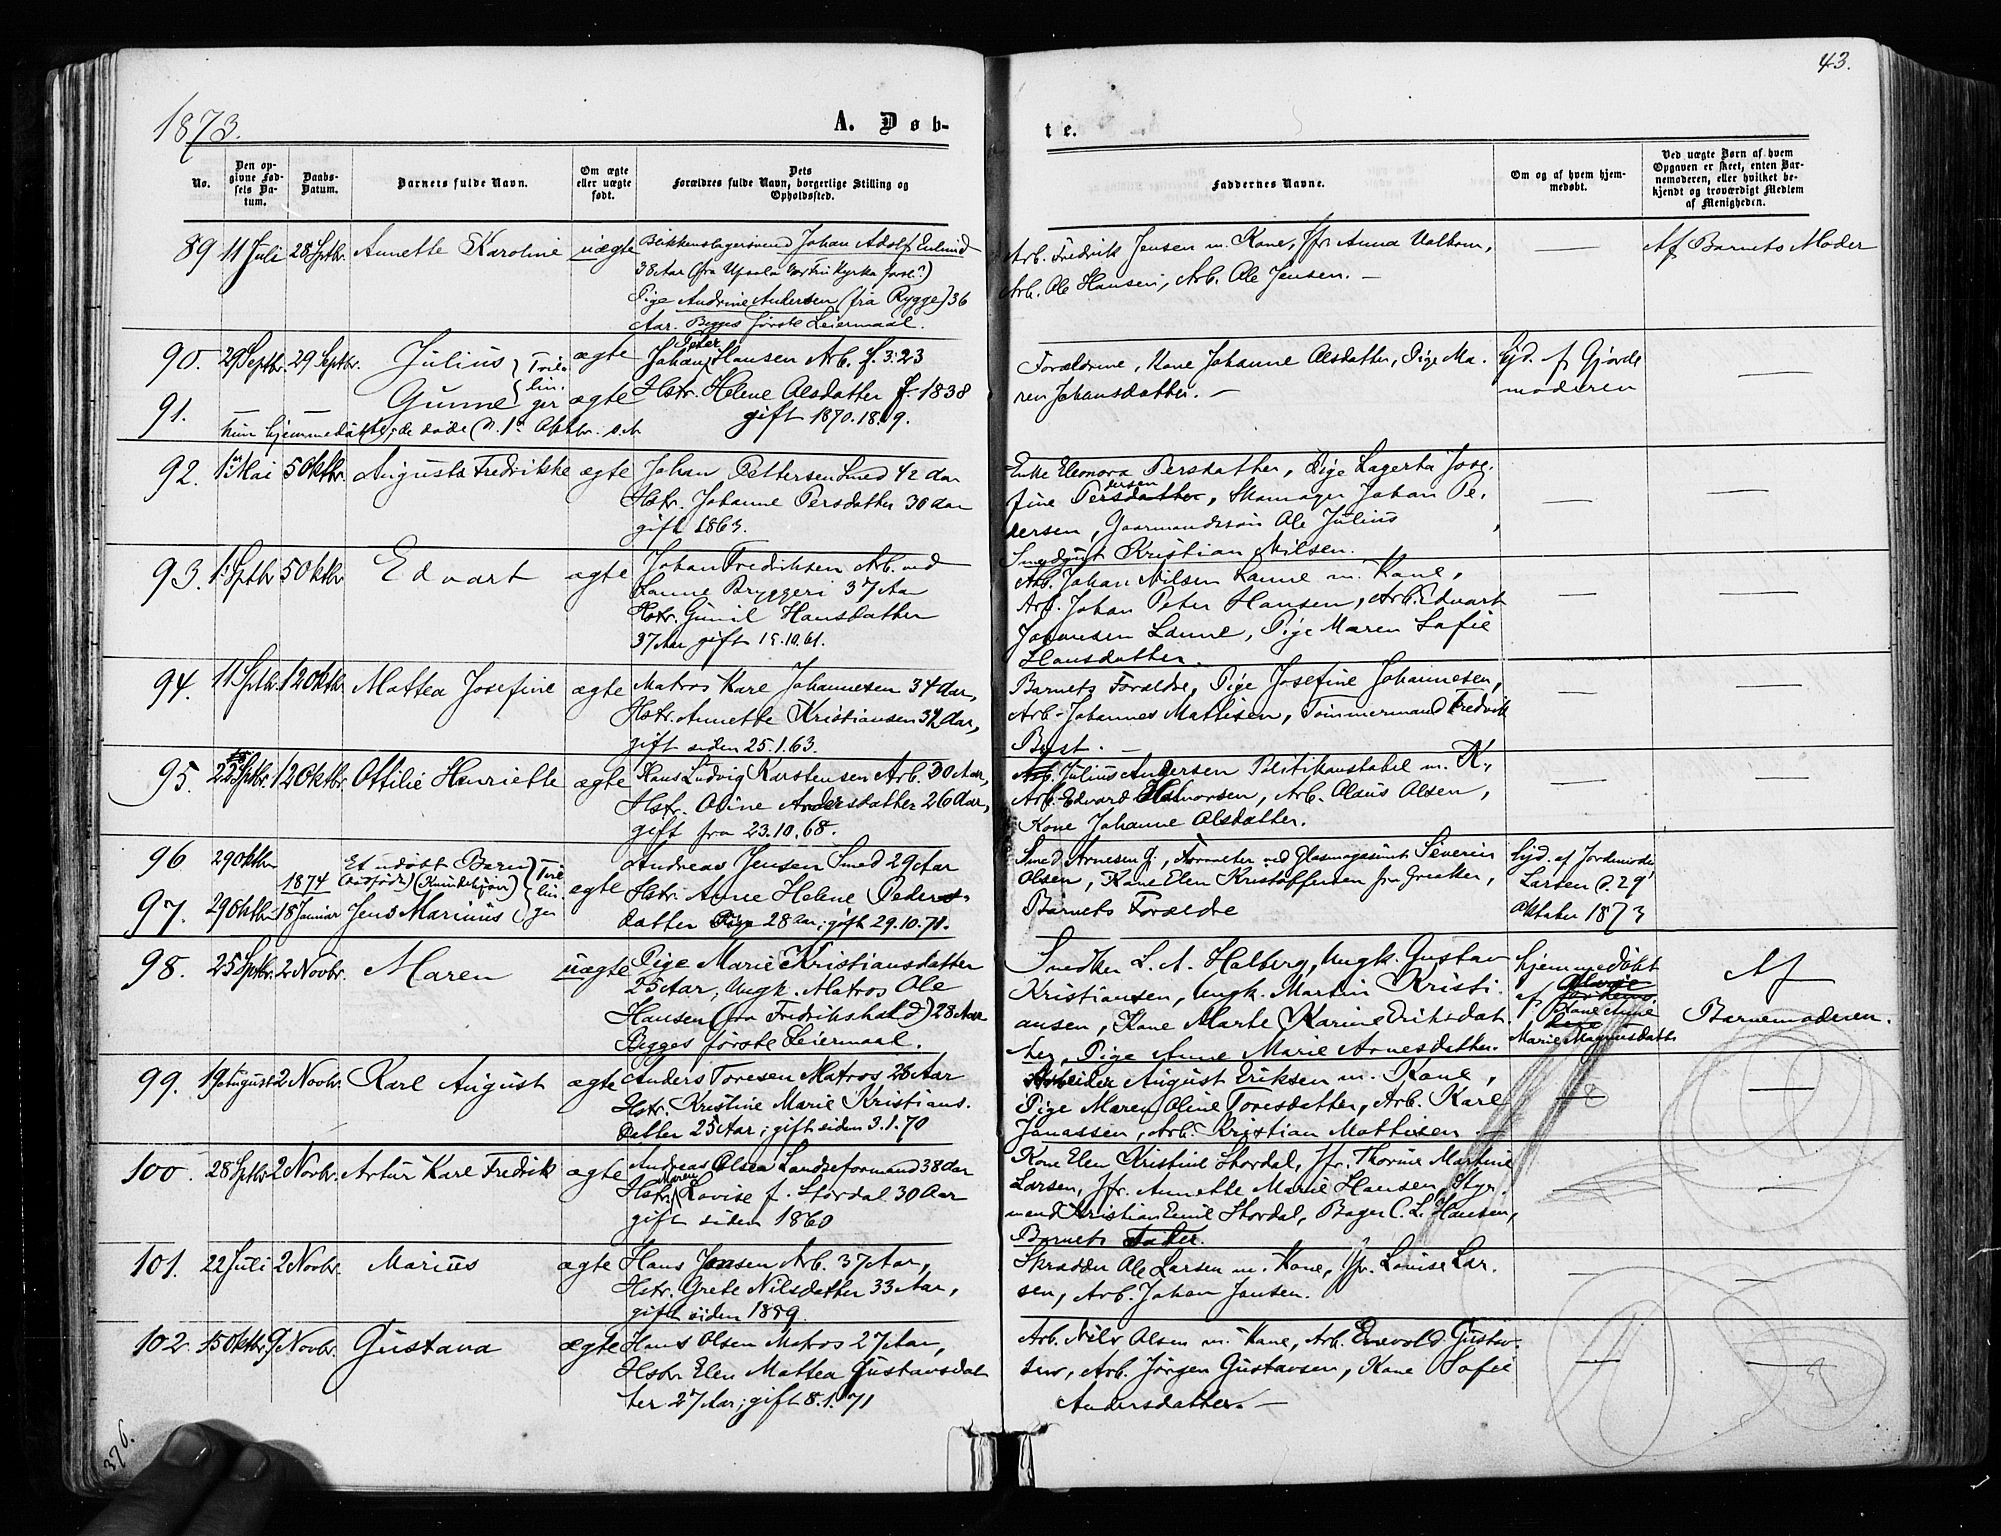 43.
1873.
A. Døb-
te.
No.
Den op-
givne Fød-
sels Da-
tum.
Daabs-
Datum.
Barnets fulde Navn.
Om ægte
eller uægte
født.
Dets
Forældres fulde Navn, borgerlige Stilling og
Opholdssted.
Faddernes Navne.
Om og af hvem hjem-
medøbt.
Ved uægte Børn af hvem
Opgaven er skeet, enten Bar-
nemoderen, eller hvilket be-
kjendt og troværdigt Medlem
af Menigheden.
89 11 Juli 28 Sptbr. Annette Karoline uægte
Blikkenslagersvend Johan Adolf
38 Aar (fra Upsala
Pige Andrine Andersen (fra Rygge) 36
Aar. Begges første Leiermaal.
Arb. Fredrik Jensen m. Kone, Jfr Anna
Arb. Ole Hansen, Arb. Ole Jensen. —
—
Af Barnets Moder
90. 29 Septbr. 29 Septbr. Julius ægte
Tvil-
lin-
ger
91. — — Gunne ægte
hun hjemmedøbt; de døde d. 1ste Oktbr.
Peter
Johan Hansen Arb. f. 3:23
Hstr. Helene Olsdatter f. 1838
gift 1870.18.9.
Forældrene, Kone Johanne Olsdatter, Pige Ma-
ren Johansdatter. —
Hjd. af Gjorde
moderen
—
92. 1 Mai 5 Oktbr. Augusta Fredrikke ægte
Johan Pettersen Smed 42 Aar
Hstr. Johanne Persdatter 30 Aar
gift 1863.
Enke Eleonora Persdatter, Pige Lagerta Jose-
fine Persdatter, Skomager Johan Pe-
dersen
dersen, Gaarmandssøn Ole Julius
Kristian Nilsen.
—
—
93. 1 Sptbr 5 Oktbr Edvart ægte
Johan Fredriksen Arb. ved
Sanne Bryggeri 37 Aar
Hstr. Gunil Hansdatter
37 Aar gift 15.10.61.
Arb. Johan Nilsen Sanne m. Kone,
Arb. Johan Peter Hansen, Arb. Edvart
Johansen Sanne, Pige Maren Sofie
Hansdatter.
—
—
94. 11 Sptbr. 12 Oktbr Mattea Josefine ægte
Matros Karl Johannesen 34 Aar,
Hstr. Annette Kristiansen 32 Aar,
gift siden 25.1.63.
Barnets Forældre, Pige Josefine Johannesen,
Arb. Johannes Mattisen, Tømmermand Fredrik
—
—
95. 22 Sptbr. 12 Oktbr. Ottilie Henriette ægte
Hans Ludvig Karstensen Arb. 30 Aar,
Hstr. Oline Andersdatter 26 Aar,
gift fra 23.10.68.
Arb. Julius Andersen Politikonstabel m. K.,
Arb. Edvard Halvorsen, Arb. Olaus Olsen,
Kone Johanne Olsdatter.
—
—
96 29 Oktbr Et udøbt Barn
(dødfødt) (Kvindekjøn)
Tvil-
lin-
ger
1874
97. 29 Oktbr. 18 Januar Jens Marinius ægte
Andreas Jensen Smed 29 Aar
Hstr. Anne Helene Peders-
datter 28 Aar; gift 29.10.71.
Smed Arnesen G., ved Glasmagasinet Severin
Olsen, Kone Elen Kristoffersen fra Greaker,
Barnets Forældre
Hjd. af Jordemoder
Larsen d. 29
Oktober 1873
98. 25 Sptbr. 2 Novbr. Maren uægte
Pige Marie Kristiansdatter
25 Aar, Ungk. Matros Ole
Hansen (fra Fredrikshald) 28 Aar
Begges første Leiermaal.
Snedker L. A. Halberg, Ungk. Gustav
Kristiansen, Ungk. Martin Kristi-
ansen, Kone Marte Karine Eriksdat-
ter, Pige Anne Marie Arnesdatter.
hjemmedøbt
af
Kone Anne
Marie Magnusdatter
Af
Barnemoderen.
99. 19 August 2 Novbr. Karl August ægte
Anders Toresen Matros 26 Aar
Hstr. Kristine Marie Kristians-
datter 25 Aar; gift siden 3.1.70
Arbeider August Eriksen m. Kone,
Pige Maren Oline Toresdatter, Arb. Karl
Jonassen, Arb. Kristian Mattisen —
—
—
100. 28 Sptbr 2 Novbr. Artur Karl Fredrik ægte
Andreas Olsen Landseformand 38 Aar
Maren
Hstr. Lovise f. Stordal 30 Aar
gift siden 1860
Kone Elen Kristine Stordal, Jfr. Thorine Martine
Larsen, Jfr. Annette Marie Hansen, Styr-
mand Kristian Emil Stordal, Bager C. L. Hansen,
Barnets Fader.
—
—
101. 22 Juli 2 Novbr. Marius ægte
Hans Jensen Arb. 37 Aar,
Hstr. Grete Nilsdatter 33 Aar,
gift siden 1859.
Skrædder Ole Larsen m. Kone, Jfr. Lovise Lar-
sen, Arb. Johan Jansen.
—
—
102. 15 Oktbr. 9 Novbr. Gustava ægte
Hans Olsen Matros 27 Aar,
Hstr. Elen Mattea Gustavsdat-
ter 27 Aar; gift 8.1.71
Arb. Nils Olsen m. Kone, Arb. Enevold Gustav-
sen, Arb. Jørgen Gustavsen, Kone Sofie
Andersdatter. —
—
—
376.